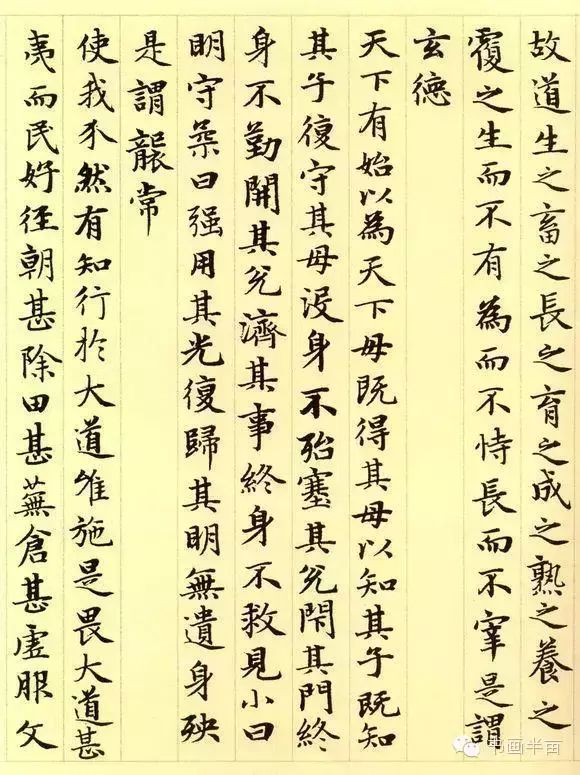 故道生之畜之長之育之成之熟之養之
覆之生而不有為而不恃長而不宰是謂
玄德
天下有始以為天下母既得其母以知其子既知
其子復守其母没身不殆塞其兌閉其門終
身不勤開其兌濟其事終身不救見小曰
明守柔曰强用其光復歸其明無遺身殃
是謂襲常
使我介然有知行於大道唯施是畏大道甚
夷而民好徑朝甚除田甚蕪倉甚虛服文
书画半亩